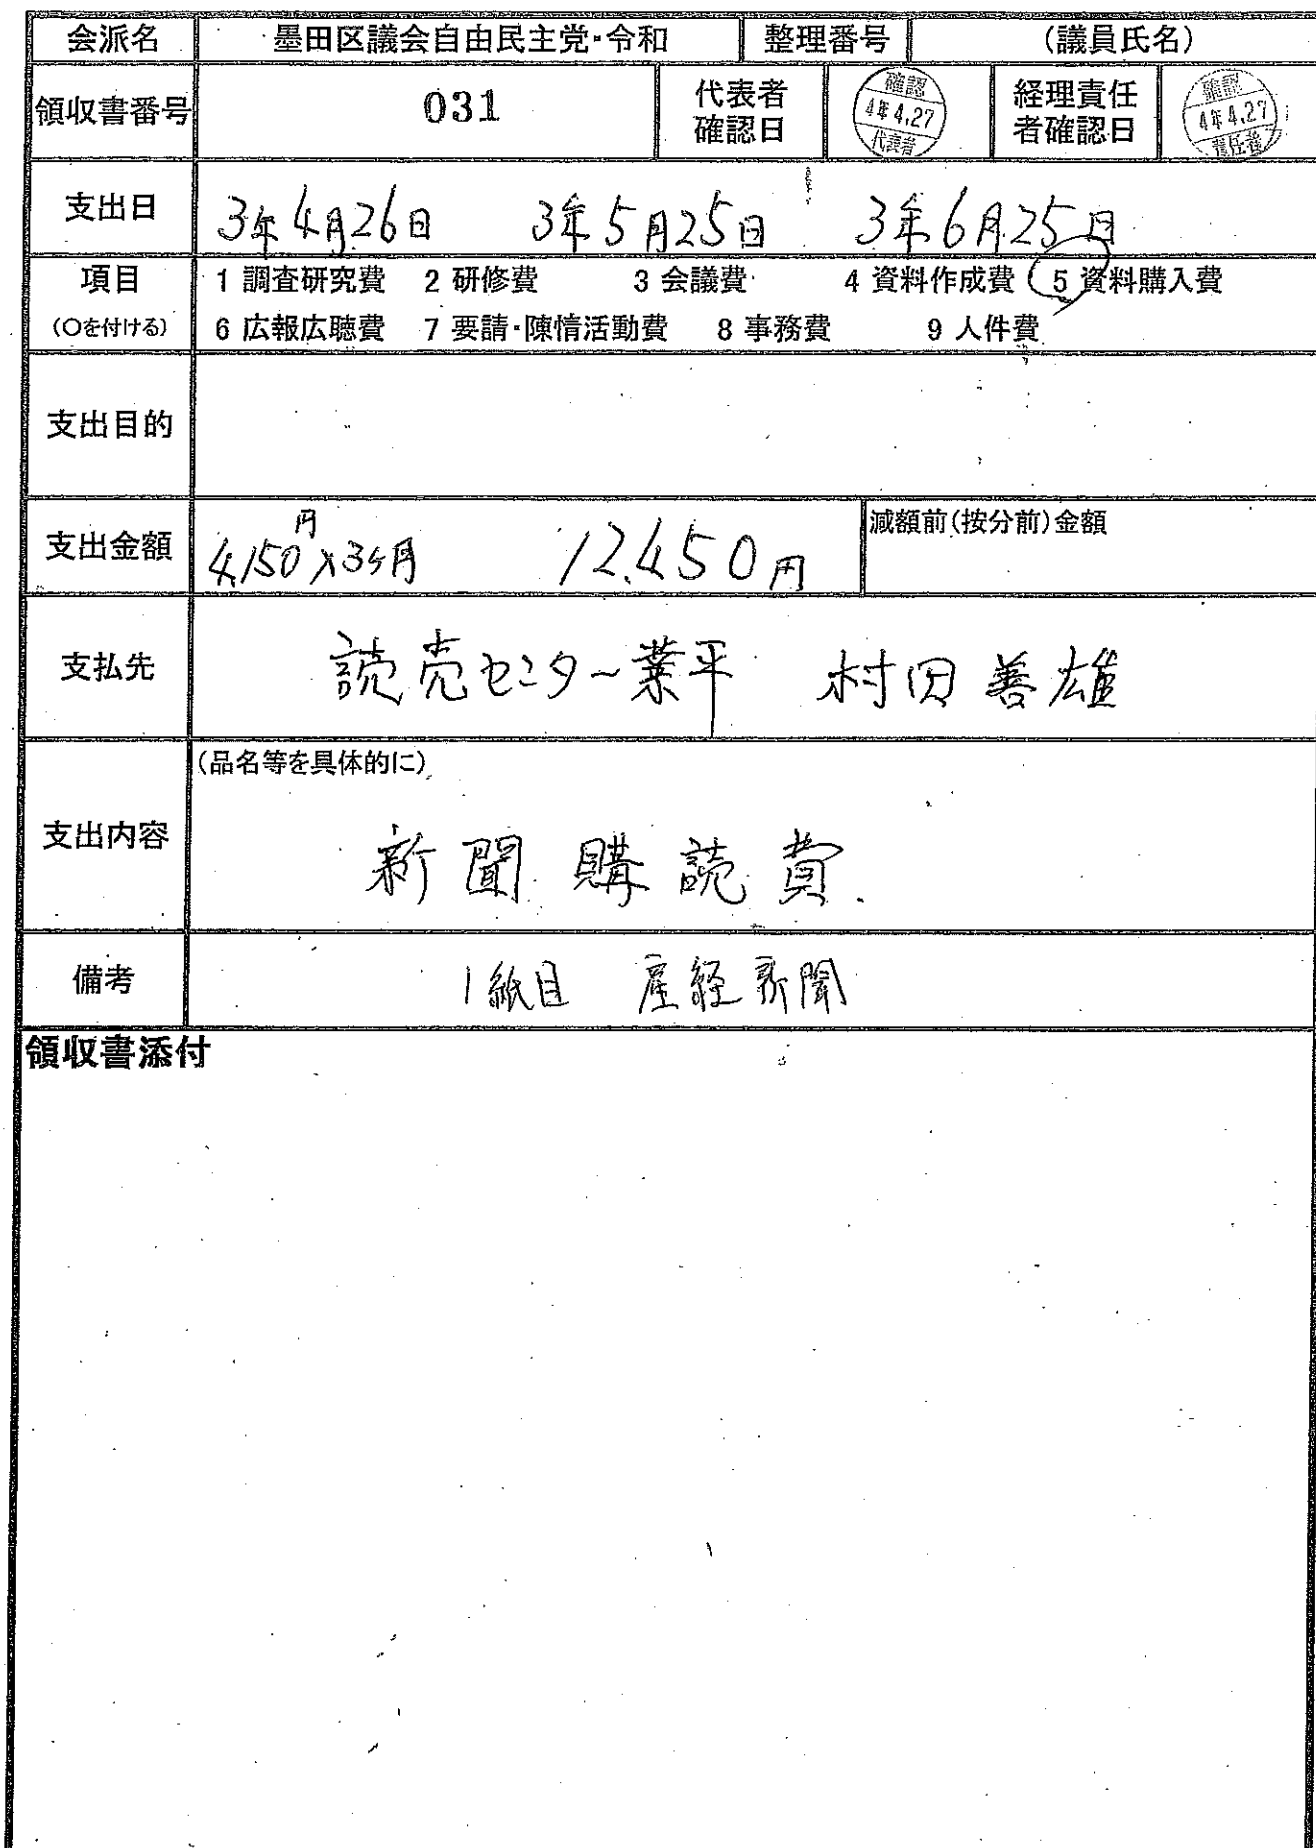 会派名 墨田区議会自由民主党・令和 整理番号 (議員氏名)
領収書番号 031 代表者確認日 確認 4年4.27 代表者 経理責任者確認日 確認 4年4.27 責任者
支出日 3年4月26日 3年5月25日 3年6月25日
項目 1 調査研究費 2 研修費 3 会議費 4 資料作成費 5 資料購入費
(○を付ける) 6 広報広聴費 7 要請・陳情活動費 8 事務費 9 人件費
支出目的
支出金額 4,150円×3ヶ月 12,450円 減額前(按分前)金額
支払先 読売センター業平 村田善雄
(品名等を具体的に)
支出内容 新聞購読費.
備考 1紙目 産経新聞
領収書添付